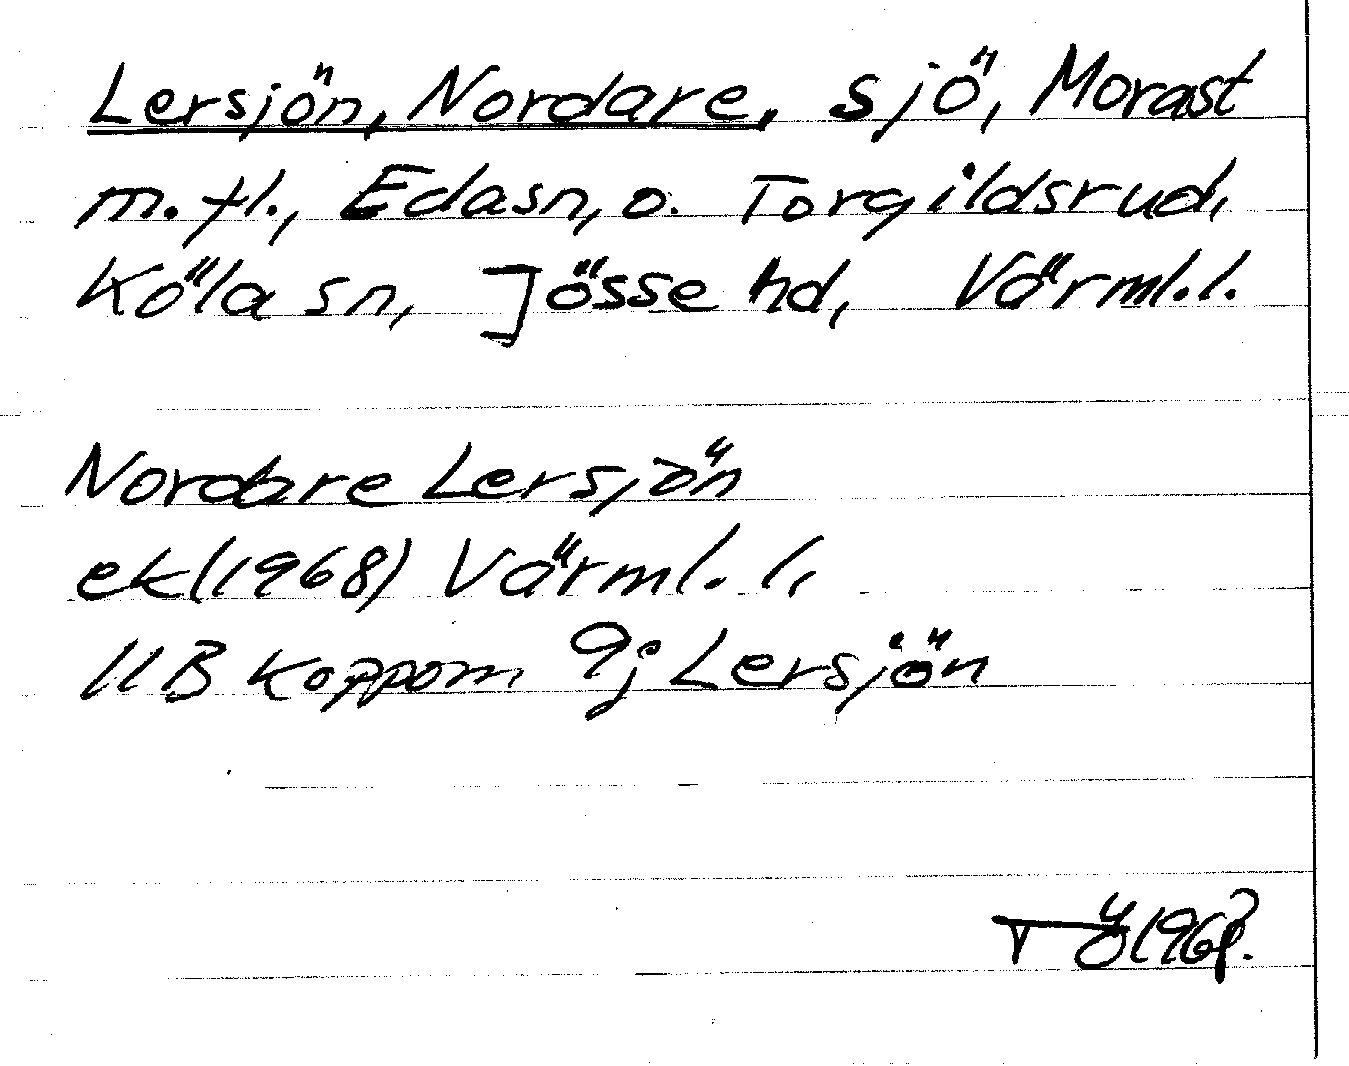 Lersjön, Nordare, sjö, Morast
m. fl., Eda sn, o. Torgildsrud,
Köla sn, Jösse hd, Värml. l.
Nordare Lersjön
ek (1968) Värml. l,
11B Koppom 9j Lersjön
TÖ